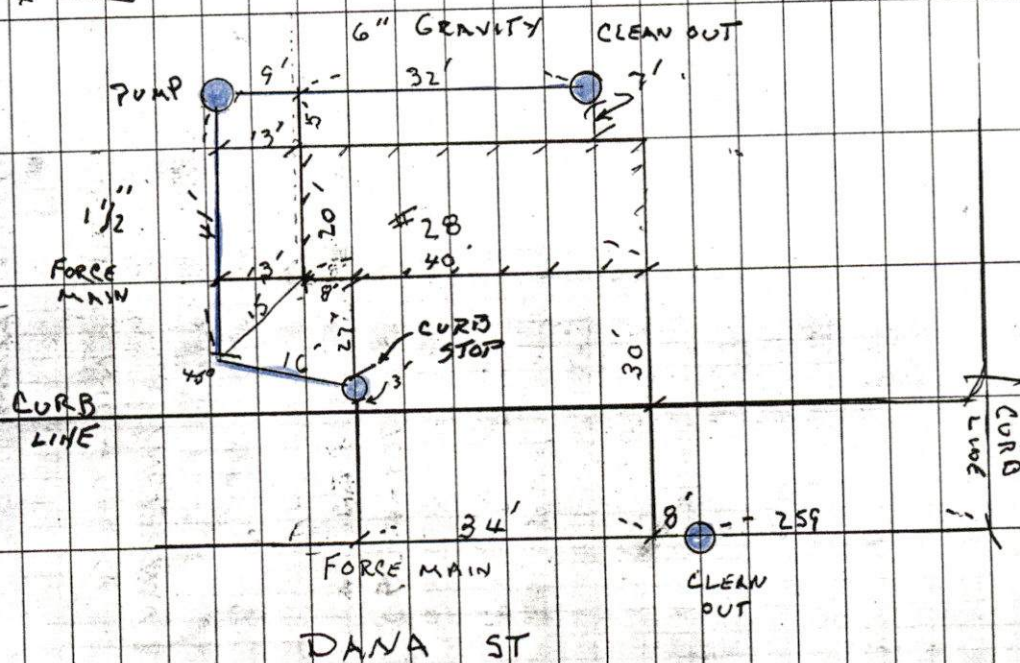 6" GRAVITY
CLEAN OUT
PUMP
9'
32'
7'
5'
13'
1 1/2"
FORCE
MAIN
41'
20'
#28
40
8'
15'
27'
CURB
STOP
30'
16'
3'
CURB
LINE
CURB
LINE
34'
8'
259
FORCE MAIN
CLEAN
OUT
DANA ST